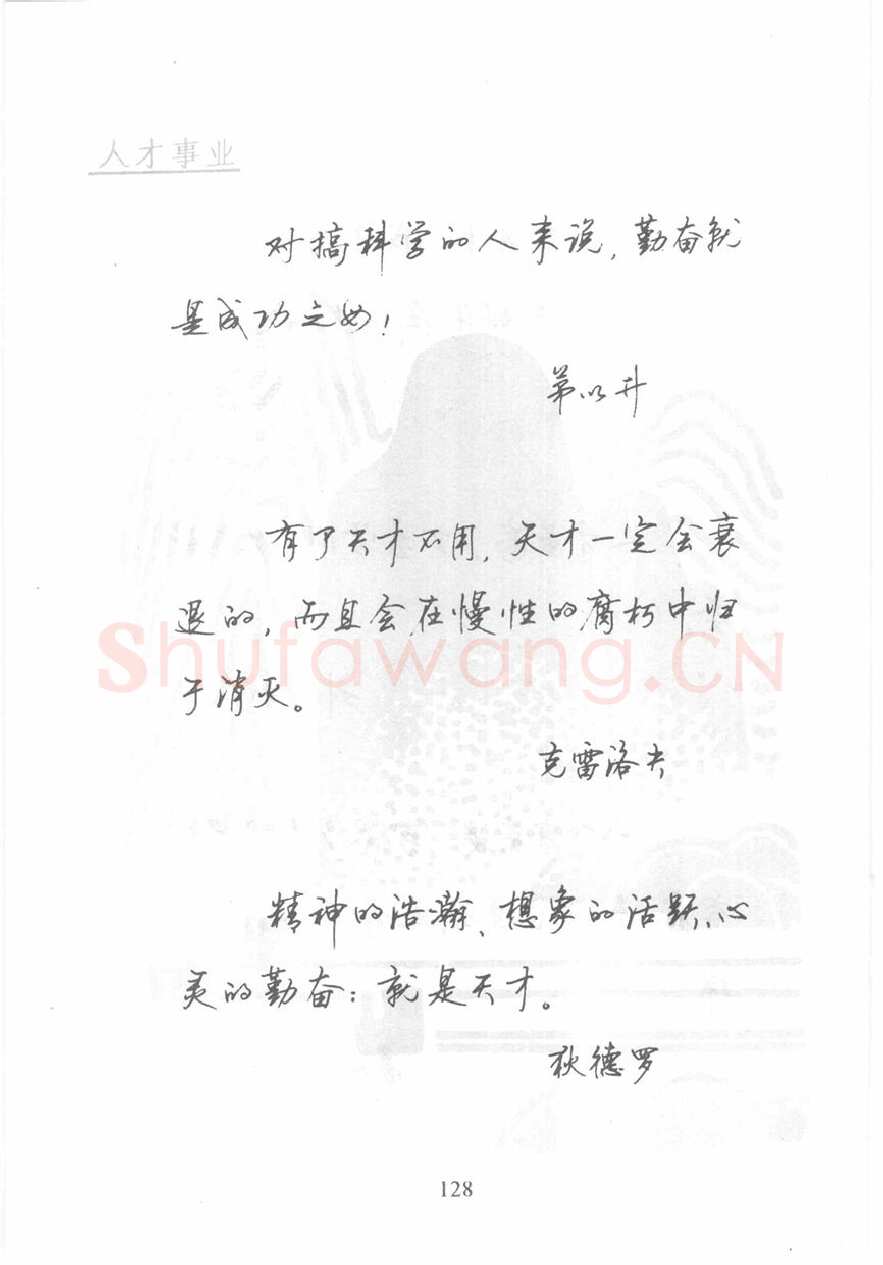 人才事业
对搞科学的人来说,勤奋就
是成功之母!
茅以升
有了天才不用,天才一定会衰
退的,而且会在慢性的腐朽中归
于消灭。
Shufawang.CN
克雷洛夫
精神的浩瀚、想象的活跃、心
灵的勤奋:就是天才。
狄德罗
128